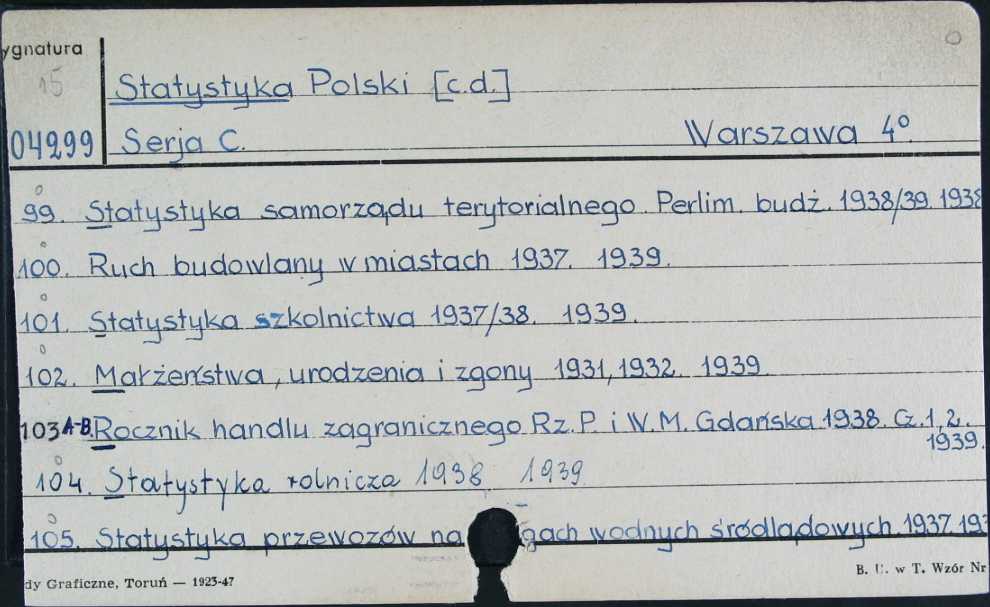 ygnatura
15
Statystyka Polski [c.d.]
04299 Serja C. Warszawa 4°.
99. Statystyka samorządu terytorialnego. Perlim. budż. 1938/39. 1938
100. Ruch budowlany w miastach 1937. 1939.
101. Statystyka szkolnictwa 1937/38. 1939.
102. Małżeństwa, urodzenia i zgony 1931, 1932. 1939
103 A-B. Rocznik handlu zagranicznego Rz. P. i W. M. Gdańska 1938. Cz. 1, 2.
1939.
104. Statystyka rolnicza 1938 1939
105. Statystyka przewozów na gach wodnych śródlądowych. 1937. 193
dy Graficzne, Toruń — 1923-47
B. U. w T. Wzór Nr